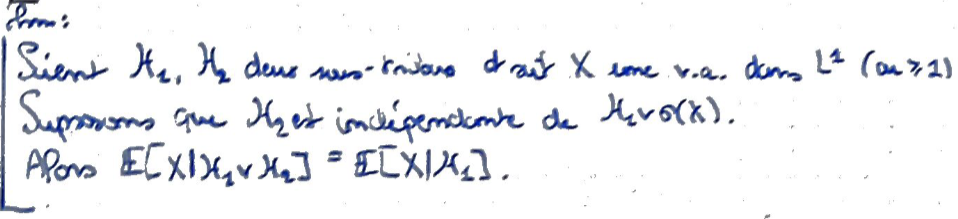 Thm:
Soient H₁, H₂ deux sous-tribus et soit X une v.a. dans L¹ (ou ≥ 1)
Supposons que H₂ est indépendante de H₁ ∨ σ(X).
Alors E[X|H₁ ∨ H₂] = E[X|H₁].